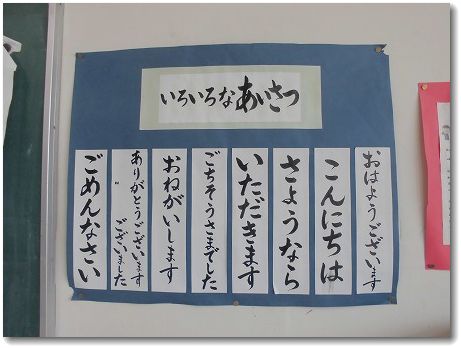 いろいろなあいさつ
おはようございます
こんにちは
さようなら
いただきます
ごちそうさまでした
おねがいします
ありがとうございます
〃 ございました
ごめんなさい